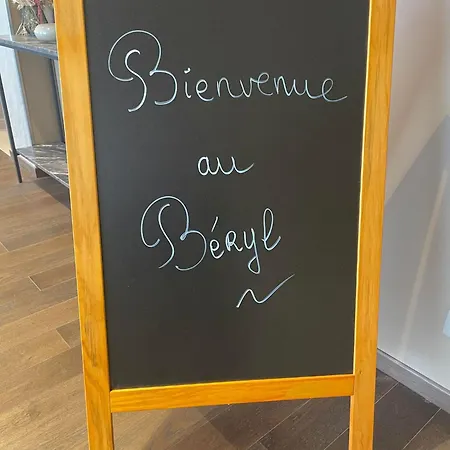 Bienvenue
au
Béryl
~